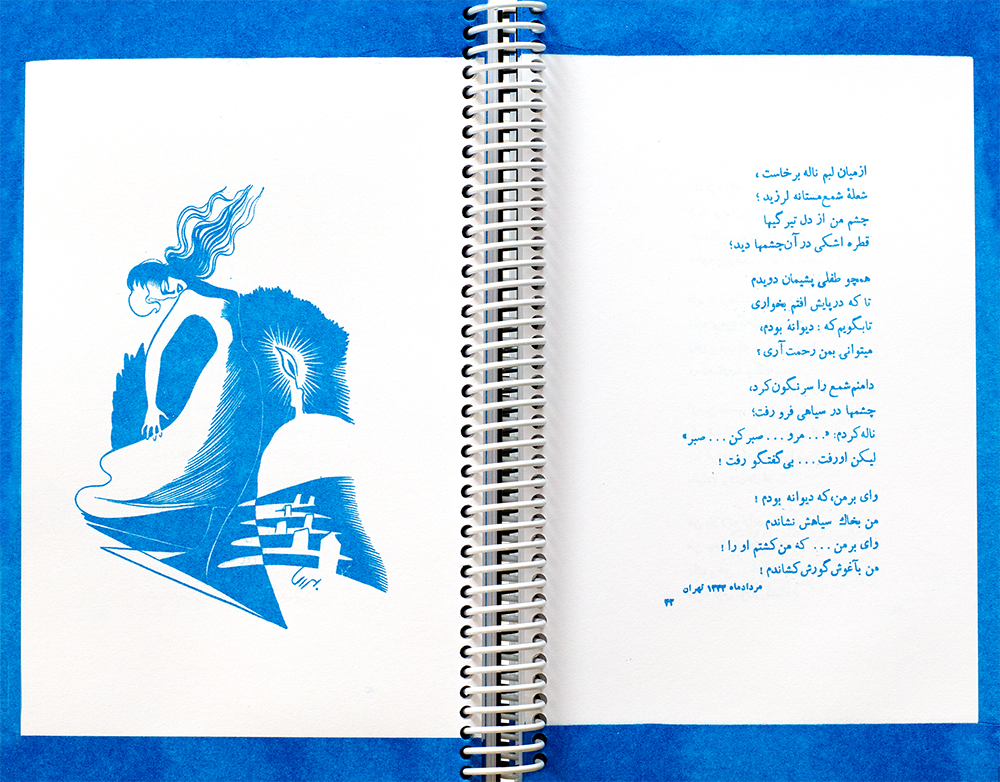 از میان لبم ناله برخاست ،
شعلهٔ شمع مستانه لرزید ؛
چشم من از دل تیرگیها
قطره اشکی در آن چشمها دید؛
همچو طفلی پشیمان دویدم
تا که درپایش افتم بخواری
تابگویم که : دیوانهٔ بودم،
میتوانی بمن رحمت آری ؟
دامنم شمع را سرنگون کرد،
چشمها در سیاهی فرو رفت؛
ناله کردم: «... مرو ... صبر کن ... صبر»
لیکن اورفت ... بی گفتگو رفت !
وای برمن، که دیوانه بودم !
من بخاك سیاهش نشاندم
وای برمن ... که من کشتم او را !
من بآغوش گورش کشاندم !
مردادماه ۱۳۳۳ تهران
۴۳